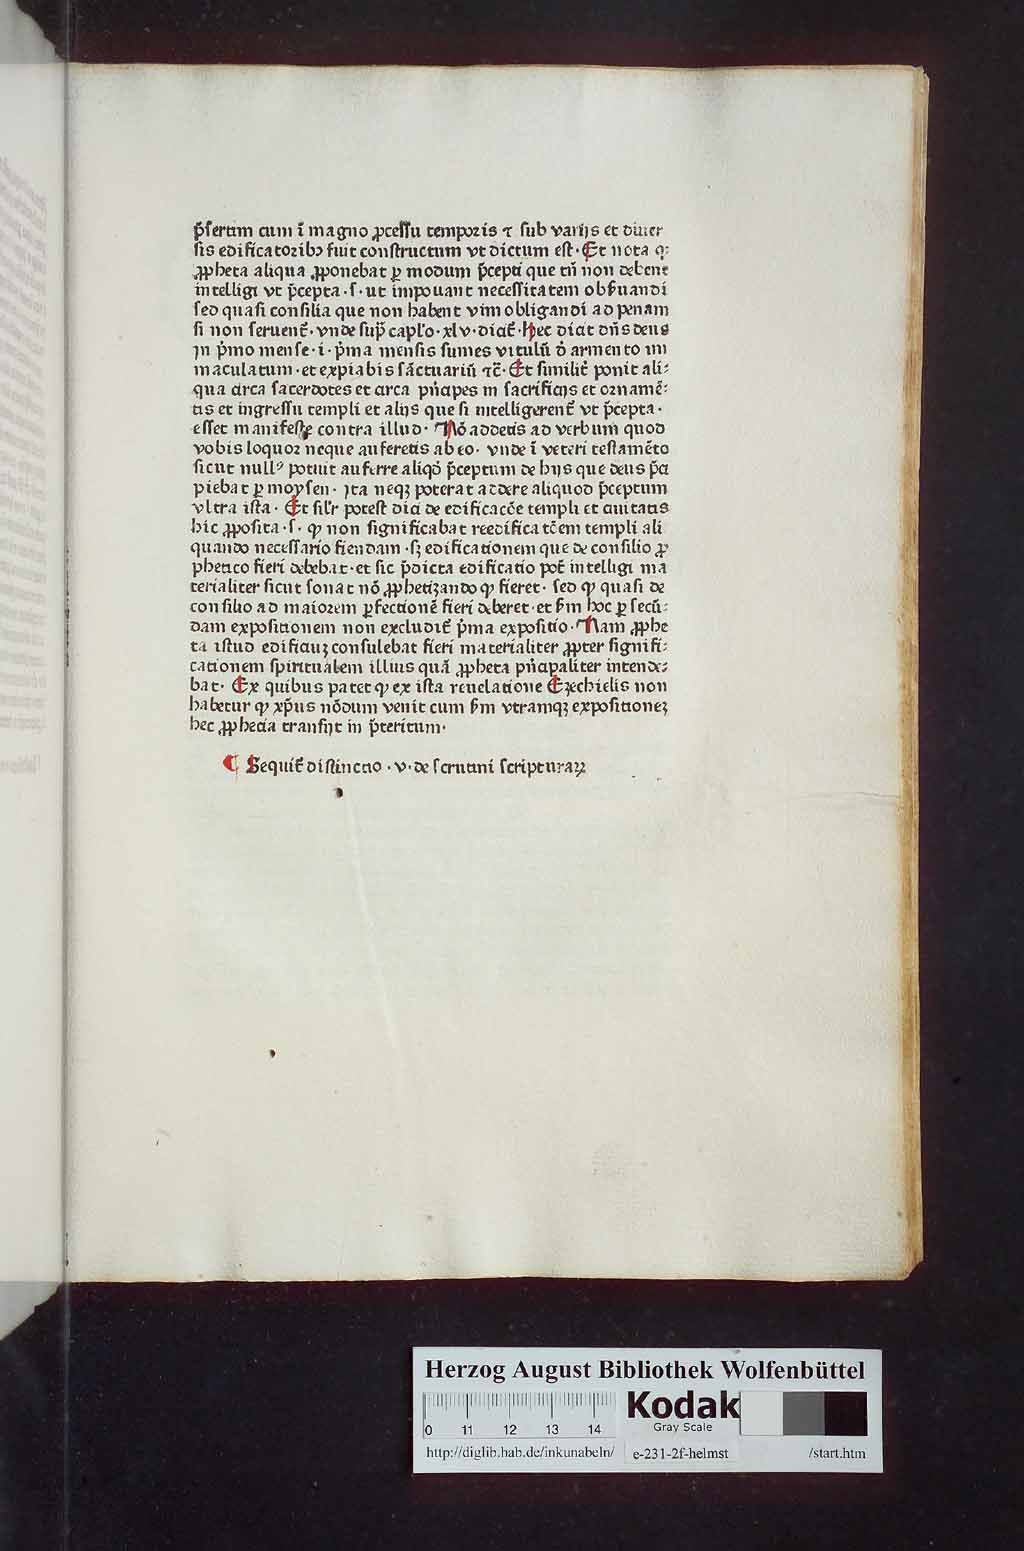 p̃sertim cum ī magno ꝓcessu temporis ⁊ sub varijs et diuer
sis edificatoribꝰ fuit constructum vt dictum est· Et nota q:
ꝓpheta aliqua ꝓponebat ꝑ modum p̃cepti que tñ non debent
intelligi vt p̃cepta · s · ut impouant necessitatem obs̃uandi
sed quasi consilia que non habent vim obligandi ad penam
si non seruent̃ · vnde sup̃ capl'o · xlv · dicit̃ · Hec dicit dñs deus
jn p̃mo mense · i · p̃ma mensis sumes vitulū d̃ armento im
maculatum · et expiabis sāctuariū ⁊c̃ · Et similit̃ ponit ali⸗
qua circa sacerdotes et circa pñcipes in sacrificijs et ornamē⸗
tis et ingressu templi et alijs que si intelligerent̃ vt p̃cepta ·
esset manifeste contra illud · Nō addetis ad verbum quod
vobis loquor neque auferetis ab eo · vnde ī veteri testamēto
sicut nullꝰ potuit auferre aliqd̃ p̃ceptum de hijs que deus p̃ci
piebat ꝑ moysen · jta neqꝫ poterat addere aliquod p̃ceptum
vltra ista · Et sil'r potest dici de edificacōe templi et ciuitatis
hic ꝓposita · s · ꝙ non significabat reedificatōem templi ali
quando necessario fiendam · sꝫ edificationem que de consilio ꝓ
phetico fieri debebat · et sic p̃dicta edificatio pot̃ intelligi ma
terialiter sicut sonat nō ꝓphetizando ꝙ fieret · sed ꝙ quasi de
consilio ad maiorem ꝑfectionē fieri deberet · et s̃m hoc ꝑ secū⸗
dam expositionem non excludit̃ p̃ma expositio · Nam ꝓphe
ta istud edificiuꝫ consulebat fieri materialiter ꝓpter signifi⸗
cationem spiritualem illius quā ꝓpheta pñcipaliter intende⸗
bat · Ex quibus patet ꝙ ex ista reuelatione Ezechielis non
habetur ꝙ xp̃us nōdum venit cum s̃m vtramqꝫ expositioneꝫ
hec ꝓphecia transijt in p̃teritum ·
¶ Sequit̃ distinctio · v · de scrutini scripturaꝝ
Herzog August Bibliothek Wolfenbüttel
0 11 12 13 14
Kodak
Gray Scale
http://diglib.hab.de/inkunabeln/ e-231-2f-helmst /start.htm